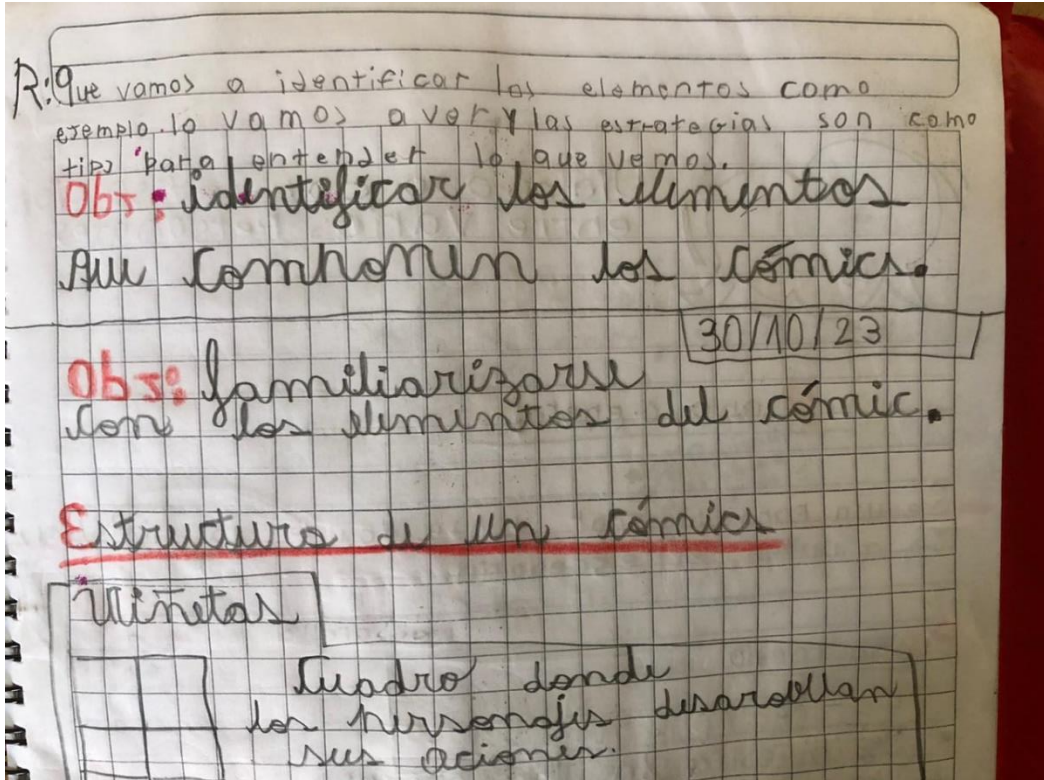 R: Que vamos a identificar los elementos como
ejemplo lo vamos a ver y las estrategias son como
tips para entender lo que vemos.
Obj: identificar los elementos
que componen los cómics.
30/10/23
Obj: familiarizarse
con los elementos del cómic.
Estructura de un cómics
Viñetas
Cuadro donde
los personajes desarollan
sus aciones.